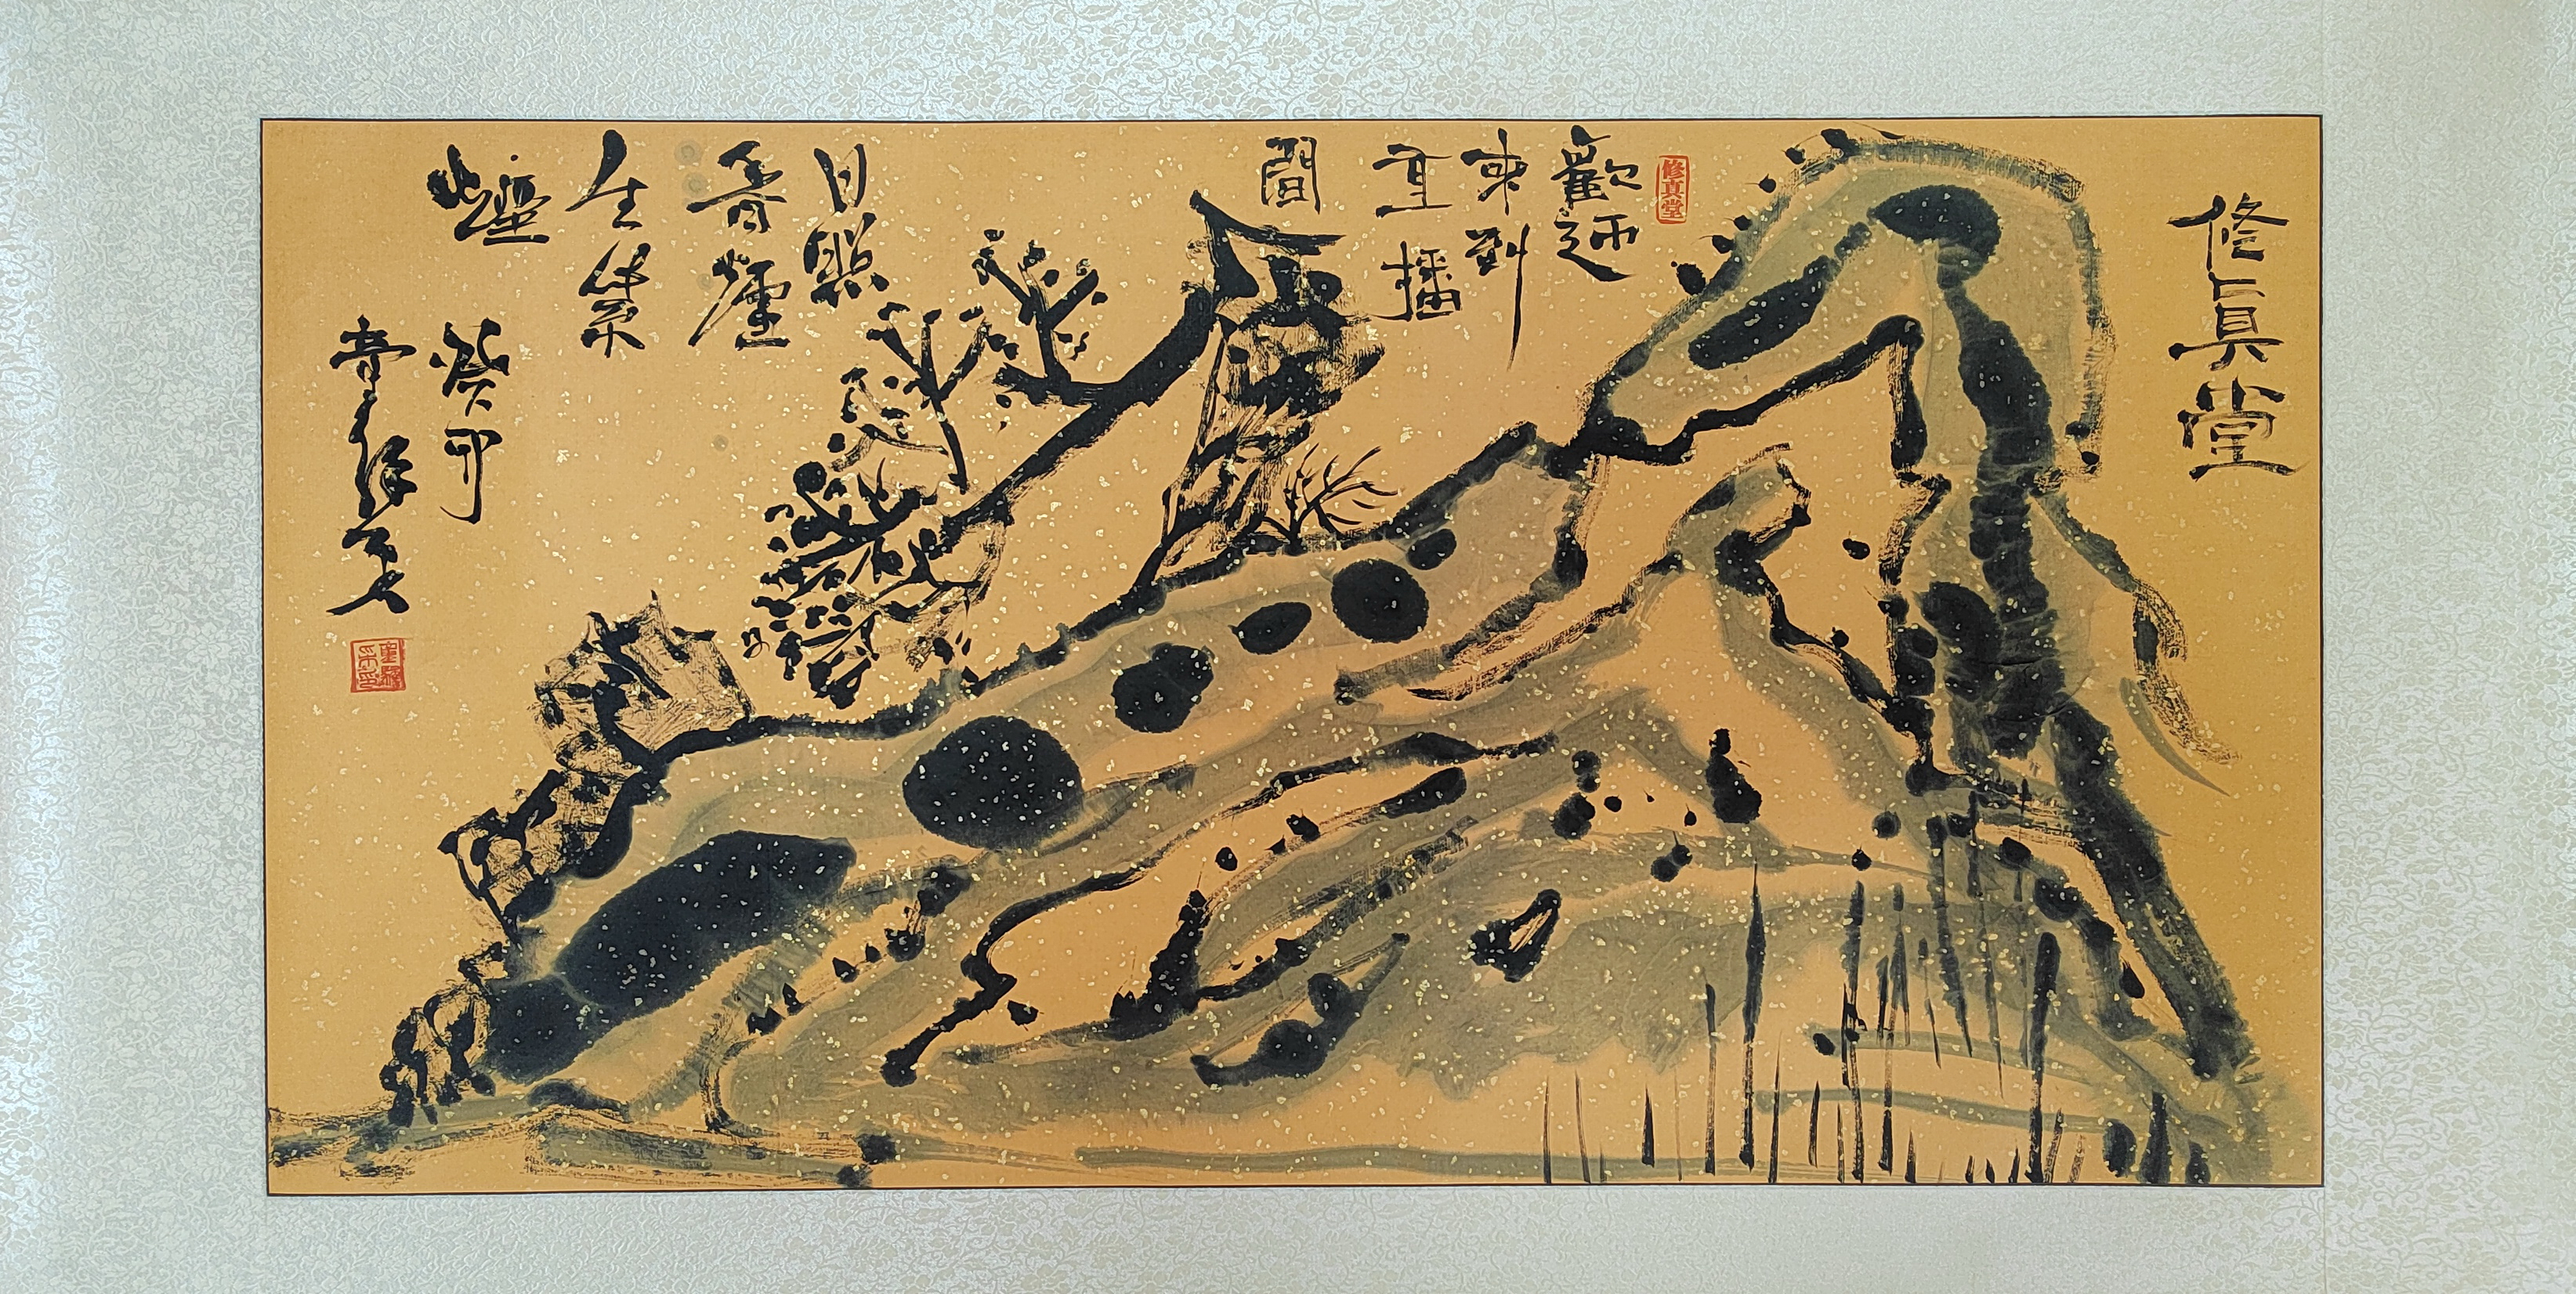 修真堂
修真堂
歡迎
來到
直播
間
日照
香爐
生紫
煙
癸卯